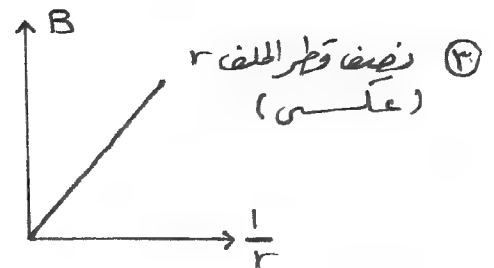 B
③ نصف قطر الملف r
(عكسى)
1/r